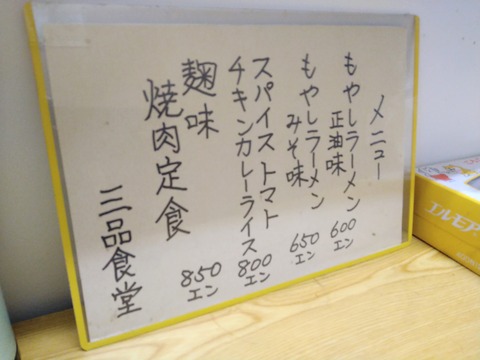 メニュー
もやしラーメン
正油味
600エン
もやしラーメン
みそ味
650エン
スパイストマト
チキンカレーライス
800エン
麹味
焼肉定食
850エン
三品食堂
エルモア